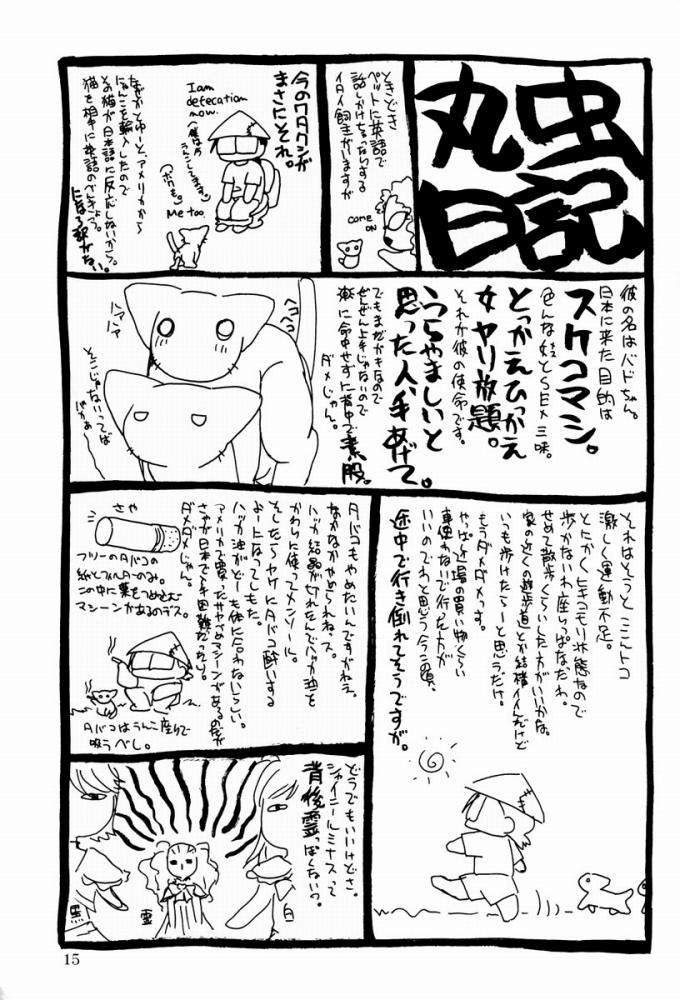 丸虫
日記
ときどき
ペットに英語で
話しかけちゃったりする
イタイ飼主がいますが
come
ON
今のワタクシが
まさにそれ。
I am
defecation
now.
(僕は今
うんこしてます)
Me too
(ボクも)
なぜかとゆーとアメリカから
にゃんこを輸入したので
その猫が日本語に反応しないから。
猫を相手に英語のべんきょう。
になる訳がない。
彼の名はバドちゃん。
日本に来た目的は
スケコマシ。
色んな娘とSEX三昧。
とっかえひっかえ
女ヤリ放題。
それが彼の使命です。
うらやましいと
思った人、手あげて。
でもまだガキなので
ぜんぜん上手じゃないので
楽に命中せずに背中で素股。
ダメじゃん。
ヘコヘコ
ハアハア
そこじゃないってば
ばかぁー
それはそうとここんトコ
激しく運動不足。
とにかくヒキコモリ状態なので
歩かないわ座いっぱなだわ。
せめて散歩くらいした方がいいかな。
家の近くの遊歩道とか結構イイんだけど
いつも歩けたらーと思うだけ。
もうダメダメっす。
やっぱ近場の買い物くらい
車使わないで行った方が
いいのでわと思う今この頃、
途中で行き倒れてそうですが。
タバコもやめたいんですがねぇ。
なかなかやめられねぇス。
ハッカ結晶が切れたんでハッカ油を
かわりに使ってメンソール。
そしたらヤケにタバコ酔いする
よーになってしもた。
ハッカ油がどーも体に合わないらしい。
アメリカで買ったサヤづめマシーンがあるのだが
さやが日本でも困難だったり。
ダメダメじゃん。
さや
フツーのタバコの
紙とフィルターのみ。
この中に葉をつめこむ
マシーンがあるのデス。
タバコはうんこ座りで
吸うべし。
どうでもいいけどさ。
シャイニールミナスって
背後霊っぽくないっ?
黒
霊
白
15